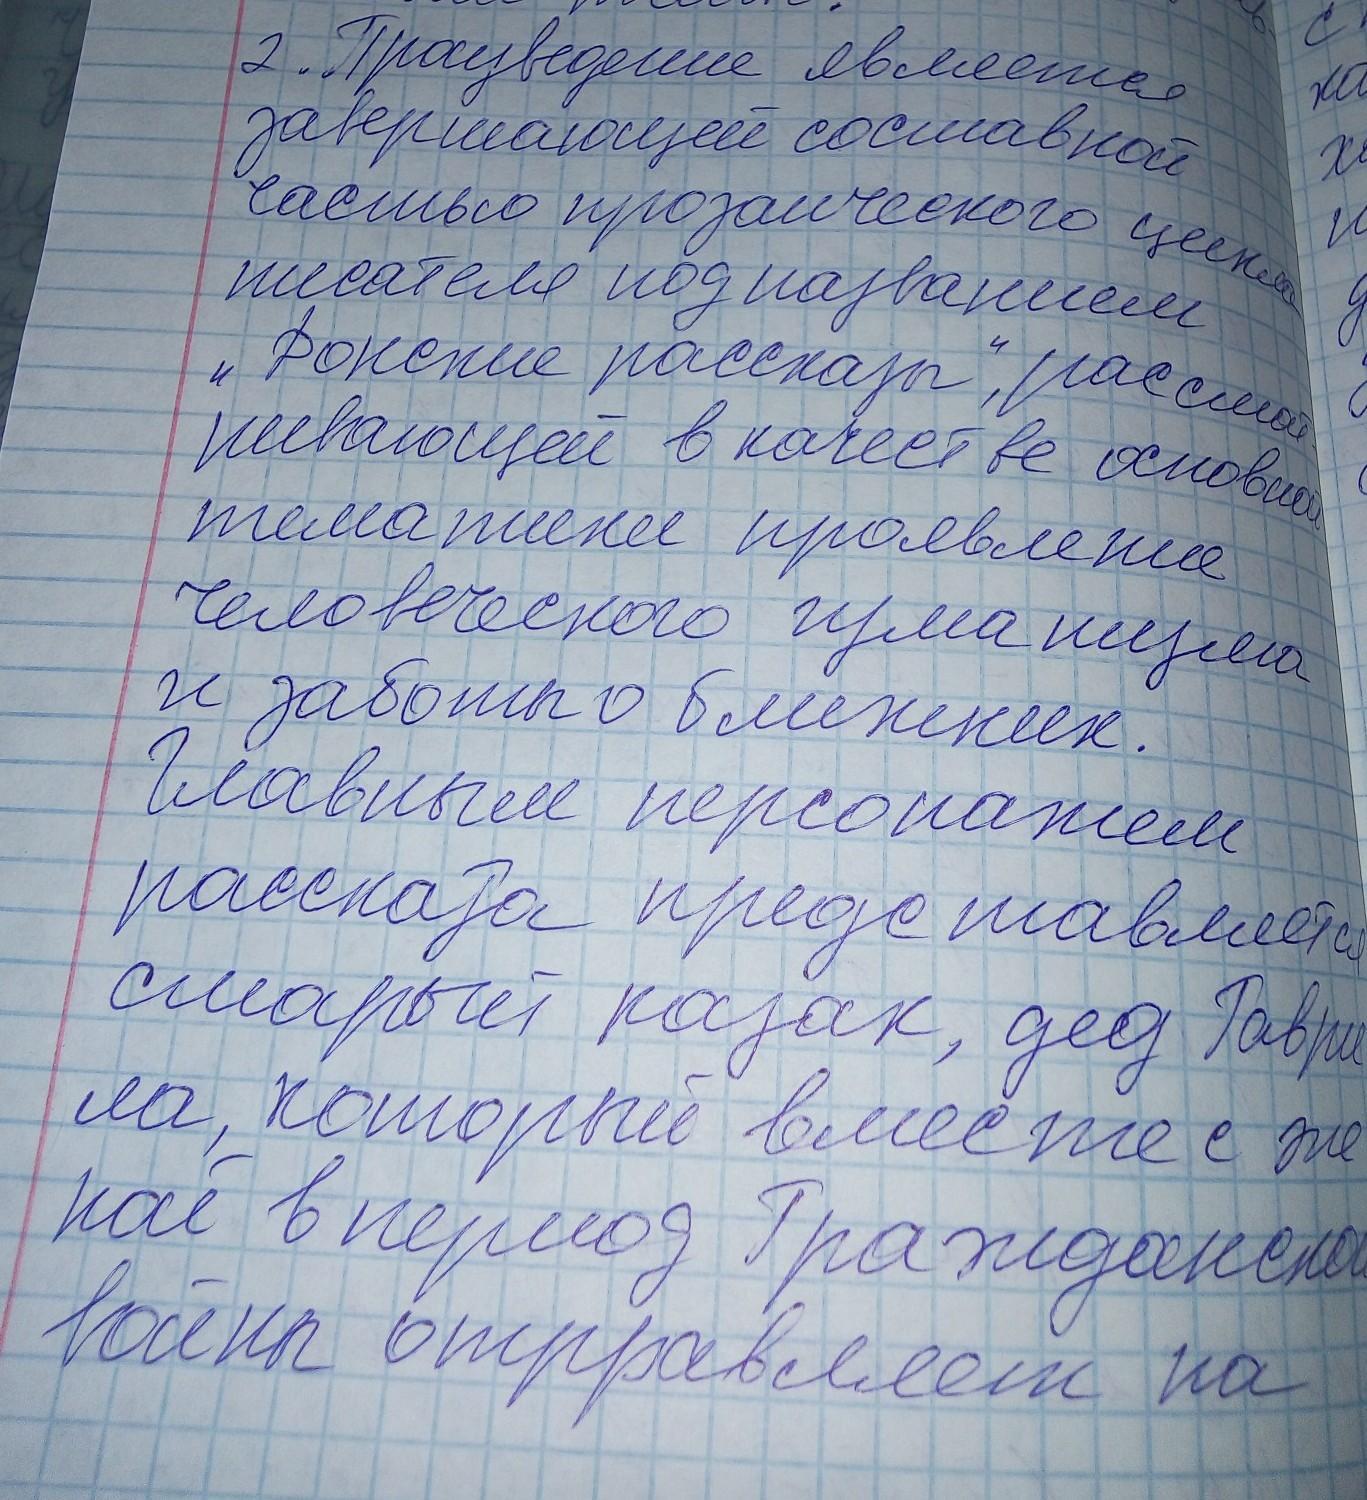 2. Произведение является
завершающей составной
частью прозаического цикла
писателя под названием
„Донские рассказы", рассмат
ривающей в качестве основной
тематики проявление
человеческого гуманизма
и заботы о ближних.
Главным персонажем
рассказа представляется
старый казак, дед Гаври
ла, который вместе с же
ной в период Гражданской
войны отправляет на